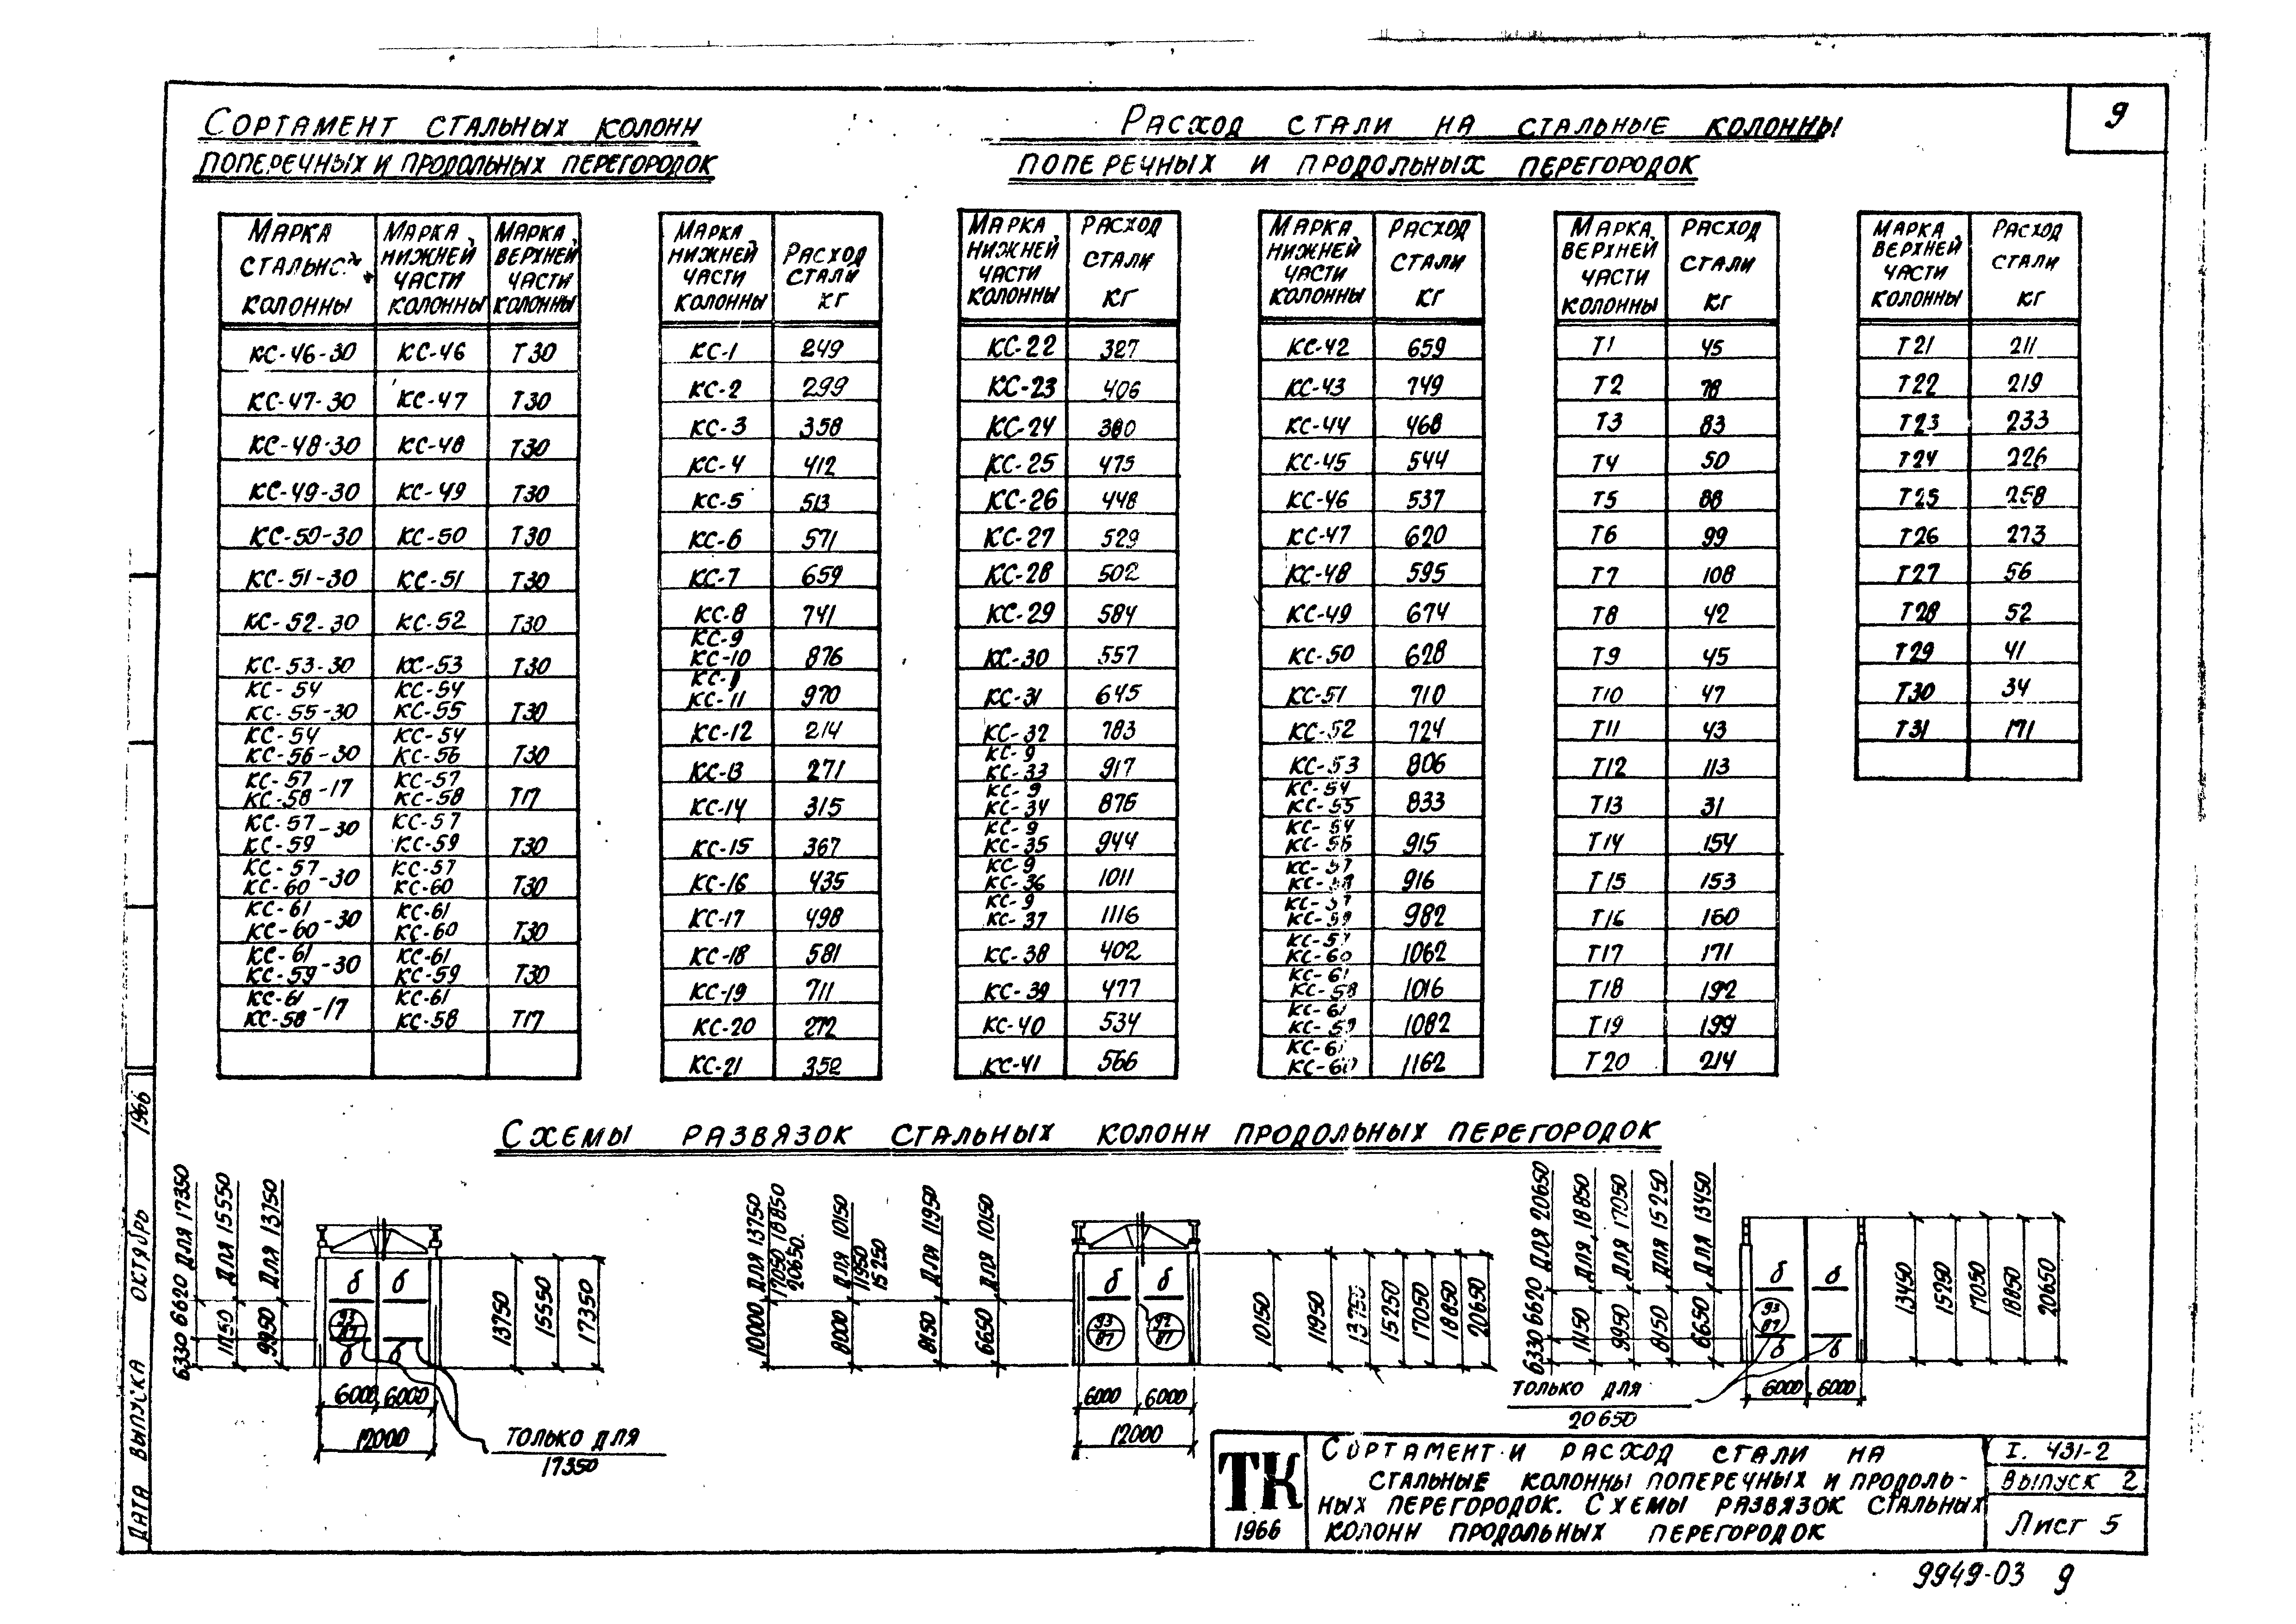 9
СОРТАМЕНТ СТАЛЬНЫХ КОЛОНН
ПОПЕРЕЧНЫХ И ПРОДОЛЬНЫХ ПЕРЕГОРОДОК
РАСХОД СТАЛИ НА СТАЛЬНЫЕ КОЛОННЫ
ПОПЕРЕЧНЫХ И ПРОДОЛЬНЫХ ПЕРЕГОРОДОК
МАРКА КОЛОННЫ | МАРКА НИЖНЕЙ ЧАСТИ КОЛОННЫ | МАРКА ВЕРХНЕЙ ЧАСТИ КОЛОННЫ
КС-46-30 КС-46 Т30
КС-47-30 КС-47 Т30
КС-48-30 КС-48 Т30
КС-49-30 КС-49 Т30
КС-50-30 КС-50 Т30
КС-51-30 КС-51 Т30
КС-52-30 КС-52 Т30
КС-53-30 КС-53 Т30
КС-54 КС-54
КС-55-30 КС-55 Т30
КС-54 КС-54
КС-56-30 КС-56 Т30
КС-57 КС-57
КС-58 -17 КС-58 Т17
КС-57 КС-57
КС-59 -30 КС-59 Т30
КС-57 КС-57
КС-60 -30 КС-60 Т30
КС-61 КС-61
КС-60 -30 КС-60 Т30
КС-61 КС-61
КС-59 -30 КС-59 Т30
КС-61 КС-61
КС-58 -17 КС-58 Т17
МАРКА НИЖНЕЙ ЧАСТИ КОЛОННЫ | РАСХОД СТАЛИ КГ
КС-1 249
КС-2 299
КС-3 358
КС-4 412
КС-5 513
КС-6 571
КС-7 659
КС-8 741
КС-9
КС-10 876
КС-11 970
КС-12 214
КС-13 271
КС-14 315
КС-15 367
КС-16 435
КС-17 498
КС-18 581
КС-19 711
КС-20 272
КС-21 352
МАРКА НИЖНЕЙ ЧАСТИ КОЛОННЫ | РАСХОД СТАЛИ КГ
КС-22 327
КС-23 406
КС-24 380
КС-25 475
КС-26 448
КС-27 529
КС-28 502
КС-29 584
КС-30 557
КС-31 645
КС-32 783
КС-9
КС-33 917
КС-9
КС-34 876
КС-9
КС-35 944
КС-9
КС-36 1011
КС-9
КС-37 1116
КС-38 402
КС-39 477
КС-40 534
КС-41 566
МАРКА НИЖНЕЙ ЧАСТИ КОЛОННЫ | РАСХОД СТАЛИ КГ
КС-42 659
КС-43 749
КС-44 468
КС-45 544
КС-46 537
КС-47 620
КС-48 595
КС-49 674
КС-50 628
КС-51 710
КС-52 724
КС-53 806
КС-54
КС-55 833
КС-54
КС-56 915
КС-57
КС-58 916
КС-57
КС-59 982
КС-57
КС-60 1062
КС-61
КС-58 1016
КС-61
КС-59 1082
КС-61
КС-60 1162
МАРКА ВЕРХНЕЙ ЧАСТИ КОЛОННЫ | РАСХОД СТАЛИ КГ
Т1 45
Т2 78
Т3 83
Т4 50
Т5 88
Т6 99
Т7 108
Т8 42
Т9 45
Т10 47
Т11 43
Т12 113
Т13 31
Т14 154
Т15 153
Т16 160
Т17 171
Т18 192
Т19 199
Т20 214
МАРКА ВЕРХНЕЙ ЧАСТИ КОЛОННЫ | РАСХОД СТАЛИ КГ
Т21 211
Т22 219
Т23 233
Т24 226
Т25 258
Т26 273
Т27 56
Т28 52
Т29 41
Т30 34
Т31 171
СХЕМЫ РАЗВЯЗОК СТАЛЬНЫХ КОЛОНН ПРОДОЛЬНЫХ ПЕРЕГОРОДОК
6330 6620 ДЛЯ 17350
11150 ДЛЯ 15550
9950 ДЛЯ 13750
б б
93
87
б б
13750
15550
17350
6000 6000
12000
ТОЛЬКО ДЛЯ
17350
10000 ДЛЯ 13750
17050 18850
20650
8000 ДЛЯ 10150
11950
15250
8150 ДЛЯ 11950
6650 ДЛЯ 10150
б б
93 92
87 87
10150
11950
13750
15250
17050
18850
20650
6000 6000
12000
6330 6620 ДЛЯ 20650
11150 ДЛЯ 18850
9950 ДЛЯ 17050
8150 ДЛЯ 15250
6650 ДЛЯ 13450
б б
93
87
б б
13450
15250
17050
18850
20650
6000 6000
ТОЛЬКО ДЛЯ
20650
ДАТА ВЫПУСКА ОКТЯБРЬ 1966
ТК
1966
СОРТАМЕНТ И РАСХОД СТАЛИ НА
СТАЛЬНЫЕ КОЛОННЫ ПОПЕРЕЧНЫХ И ПРОДОЛЬ-
НЫХ ПЕРЕГОРОДОК. СХЕМЫ РАЗВЯЗОК СТАЛЬНЫХ
КОЛОНН ПРОДОЛЬНЫХ ПЕРЕГОРОДОК
I. 431-2
ВЫПУСК 2
ЛИСТ 5
9949-03 9